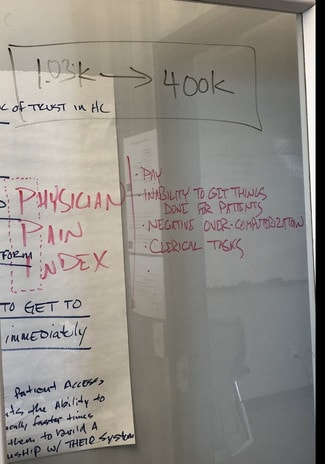 1.03k → 400k
OF TRUST IN HC
PHYSICIAN
PAIN
INDEX
FORM
TO GET TO
immediately
Patient Access,
the Ability to
faster times
them to build A
W/ THEIR System
· PAY
- INABILITY TO GET THINGS
DONE FOR PATIENTS
· NEGATIVE OVER-COMPUTERIZATION
· CLERICAL TASKS